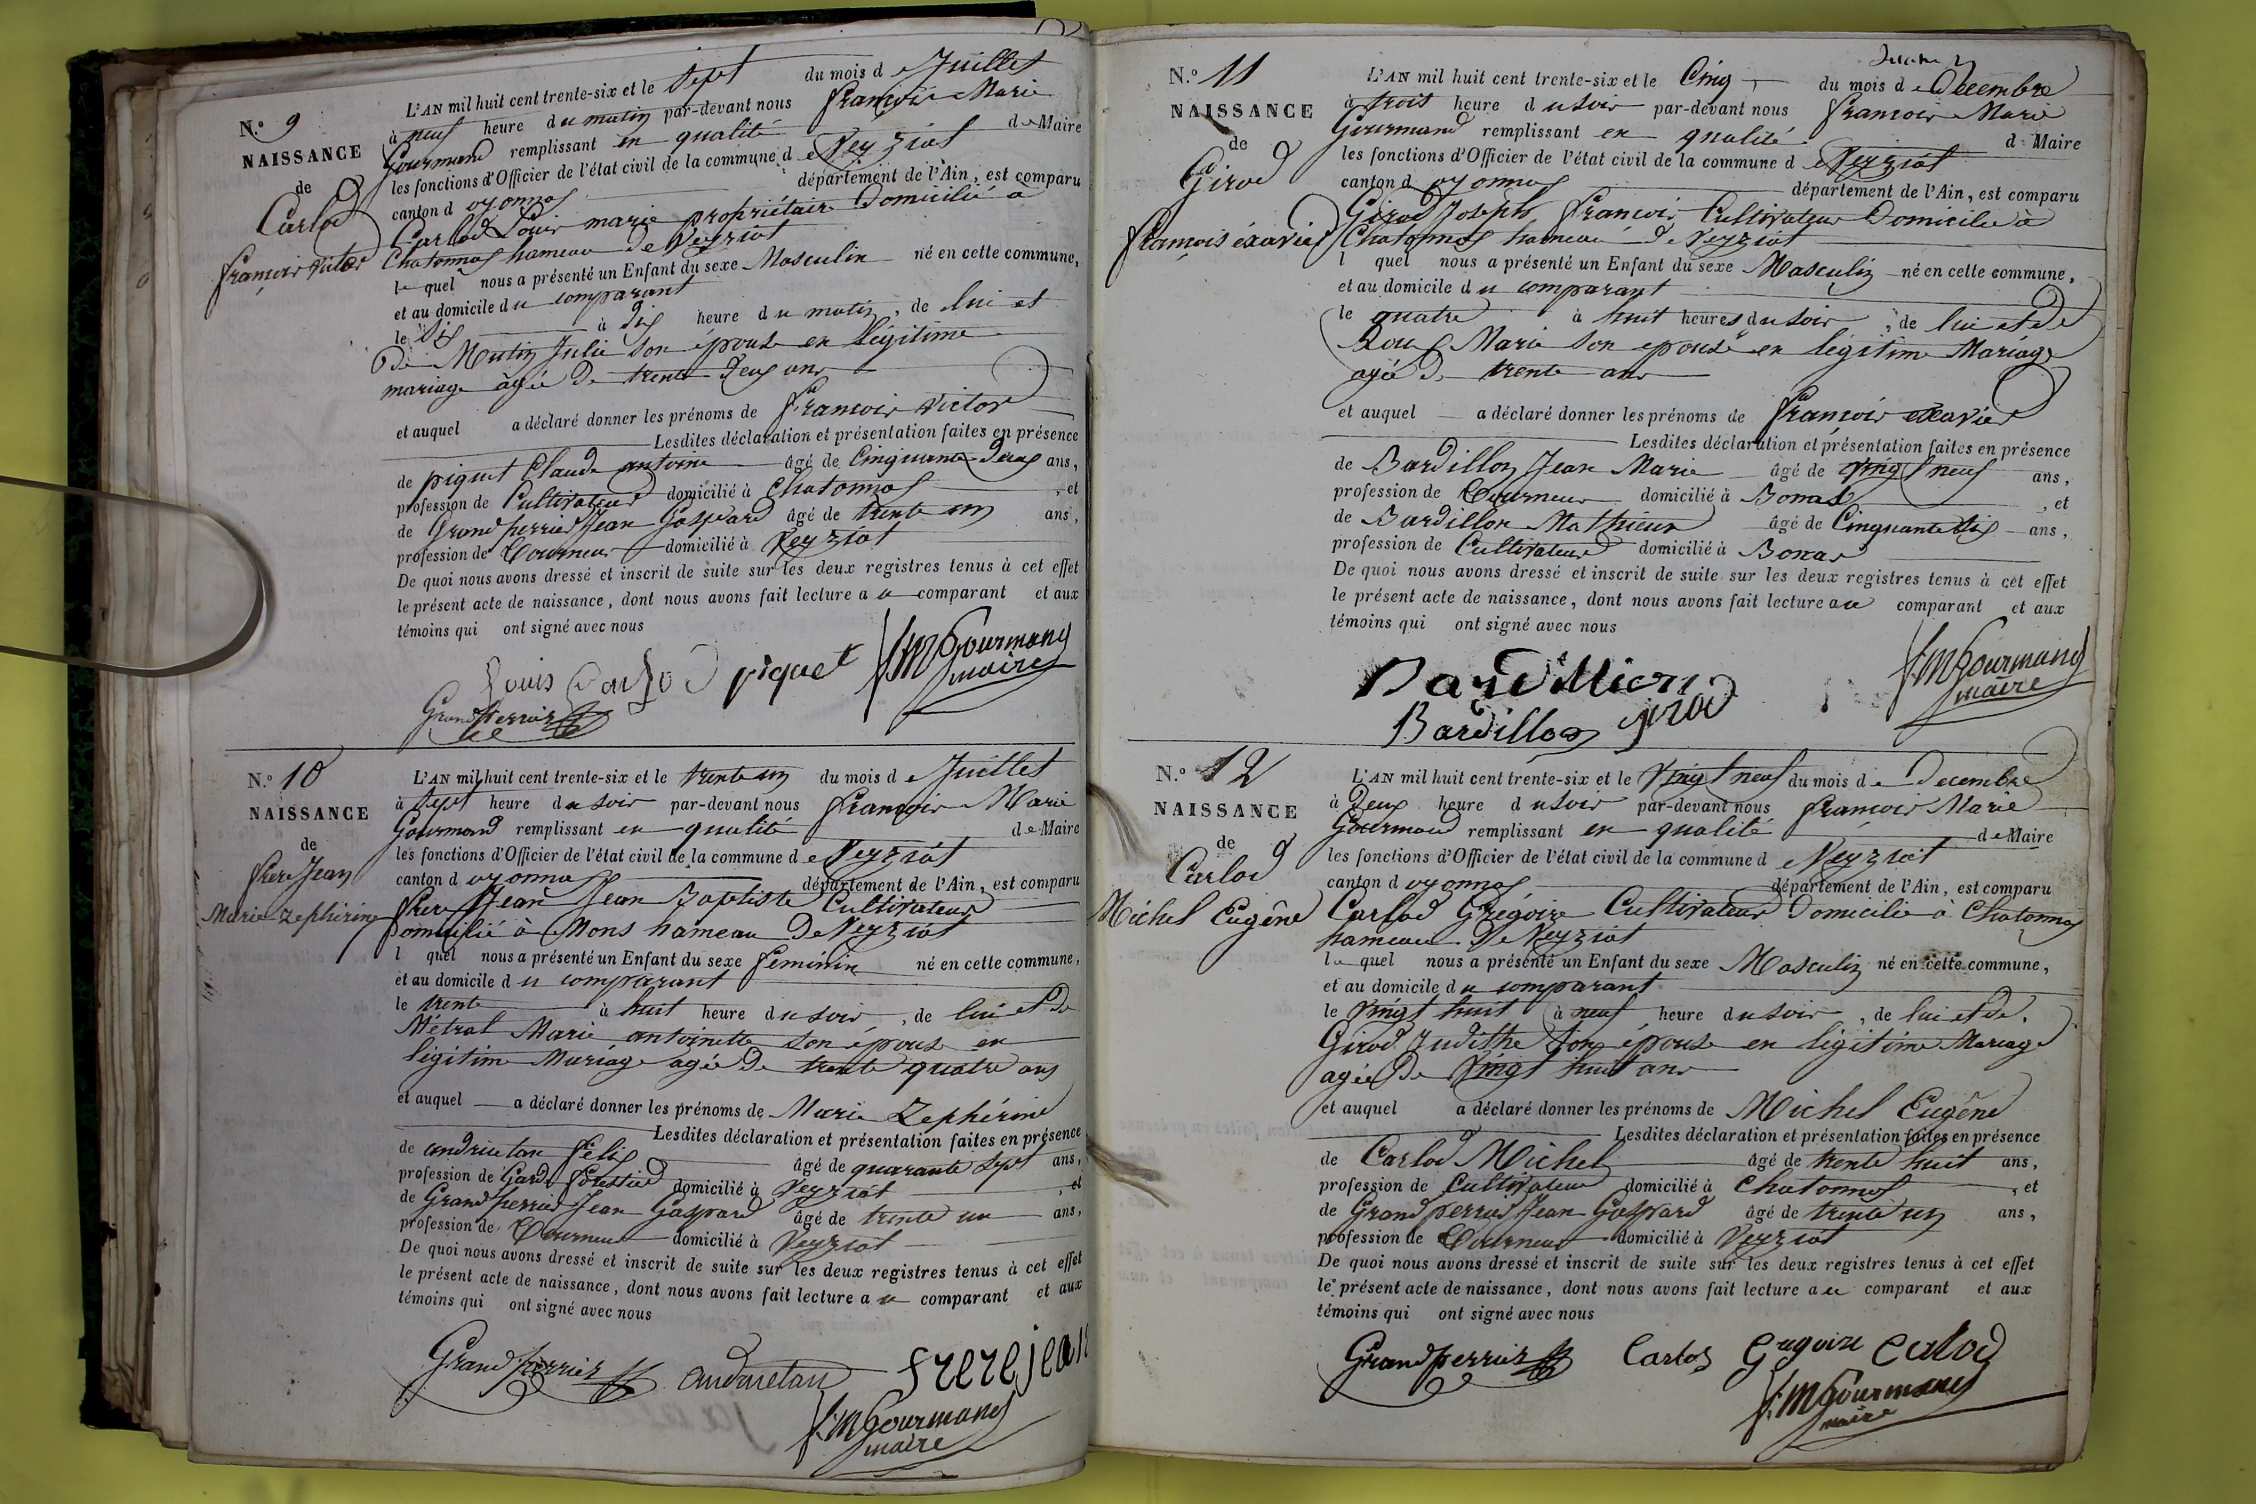 N.º 9
NAISSANCE
de
Carlod
françois victor
L'AN mil huit cent trente-six et le sept du mois de Juillet
à neuf heure du matin par-devant nous françois Marie
Gourmand remplissant en qualité de Maire
les fonctions d'Officier de l'état civil de la commune de Veyziat
canton d oyonnas département de l'Ain, est comparu
Carlod Louis marie propriétaire Domicilié à
Chatonnas hameau de Veyziat
le quel nous a présenté un Enfant du sexe Masculin né en cette commune,
et au domicile du comparant
le six à dix heure du matin, de lui et
de Mutin Julie son épouse en légitime
mariage âgée de trente deux ans
et auquel a déclaré donner les prénoms de françois victor
Lesdites déclaration et présentation faites en présence
de piquet Claude antoine âgé de Cinquante deux ans,
profession de Cultivateur domicilié à Chatonnas, et
de Grandperrier Jean Gaspard âgé de trente un ans,
profession de Tourneur domicilié à Veyziat
De quoi nous avons dressé et inscrit de suite sur les deux registres tenus à cet effet
le présent acte de naissance, dont nous avons fait lecture au comparant et aux
témoins qui ont signé avec nous
Louis Carlod piquet f.M Gourmand
maire
Grandperrier
N.º 10
NAISSANCE
de
frere Jean
Marie zephirine
L'AN mil huit cent trente-six et le trente un du mois de Juillet
à sept heure du soir par-devant nous françois Marie
Gourmand remplissant en qualité de Maire
les fonctions d'Officier de l'état civil de la commune de Veyziat
canton d oyonnas département de l'Ain, est comparu
frere Jean Jean Baptiste Cultivateur
Domicilié à Mons hameau De Veyziat
l quel nous a présenté un Enfant du sexe féminin né en cette commune,
et au domicile du comparant
le trente à huit heure du soir, de lui et De
Métral Marie antoinette son épouse en
légitime Mariage agée De trente quatre ans
et auquel a déclaré donner les prénoms de Marie Zephérine
Lesdites déclaration et présentation faites en présence
de andruetan félix âgé de quarante sept ans,
profession de Garde forestier domicilié à Veyziat, et
de Grandperrier Jean Gaspard âgé de trente un ans,
profession de Tourneur domicilié à Veyziat
De quoi nous avons dressé et inscrit de suite sur les deux registres tenus à cet effet
le présent acte de naissance, dont nous avons fait lecture au comparant et aux
témoins qui ont signé avec nous
Grandperrier andruetan frerejean
f.M Gourmand
maire
N.º 11
NAISSANCE
de
Girod
françois éxavier
L'AN mil huit cent trente-six et le Cinq du mois de Decembre
à trois heure du soir par-devant nous françois Marie
Gourmand remplissant en qualité d Maire
les fonctions d'Officier de l'état civil de la commune de Veyziat
canton d oyonnas département de l'Ain, est comparu
Girod Joseph, françois Cultivateur Domicilié à
Chatonnas hameau de Veyziat
l quel nous a présenté un Enfant du sexe Masculin né en cette commune,
et au domicile du comparant
le quatre à huit heures du soir, de lui et de
Roux Marie son épouse en légitime Mariage
agée De trente ans
et auquel a déclaré donner les prénoms de françois exavier
Lesdites déclaration et présentation faites en présence
de Bardillon Jean Marie âgé de Vingt neuf ans,
profession de Tourneur domicilié à Bonas, et
de Bardillon Mathieux âgé de Cinquante six ans,
profession de Cultivateur domicilié à Bonas
De quoi nous avons dressé et inscrit de suite sur les deux registres tenus à cet effet
le présent acte de naissance, dont nous avons fait lecture au comparant et aux
témoins qui ont signé avec nous
Bardillion f.M Gourmand
maire
Bardillon girod
N.º 12
NAISSANCE
de
Carlod
Michel Eugêne
L'AN mil huit cent trente-six et le Vingt neuf du mois de Decembre
à Deux heure du soir par-devant nous françois Marie
Gourmand remplissant en qualité de Maire
les fonctions d'Officier de l'état civil de la commune de Veyziat
canton d oyonnas département de l'Ain, est comparu
Carlod Grégoire Cultivateur Domicilié à Chatonnas
hameau De Veyziat
le quel nous a présenté un Enfant du sexe Masculin né en cette commune,
et au domicile du comparant
le Vingt huit à neuf heure du soir, de lui et de.
Girod Judithe son épouse en légitime Mariage
agée De Vingt huit ans
et auquel a déclaré donner les prénoms de Michel Eugêne
Lesdites déclaration et présentation faites en présence
de Carlod Michel âgé de trente huit ans,
profession de Cultivateur domicilié à Chatonnas, et
de Grandperrier Jean Gaspard âgé de trente un ans,
profession de Tourneur domicilié à Veyziat
De quoi nous avons dressé et inscrit de suite sur les deux registres tenus à cet effet
le présent acte de naissance, dont nous avons fait lecture au comparant et aux
témoins qui ont signé avec nous
Grandperrier Carlod Gregoire Carlod
f.M Gourmand
maire